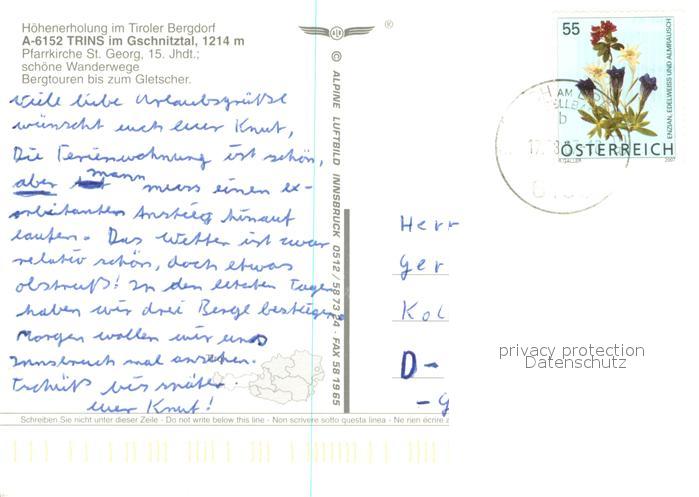 Höhenerholung im Tiroler Bergdorf
A-6152 TRINS im Gschnitztal, 1214 m
Pfarrkirche St. Georg, 15. Jhdt.;
schöne Wanderwege
Bergtouren bis zum Gletscher.
Viele liebe Urlaubsgrüße
wünscht euch euer Knut,
Die Ferienwohnung ist schön,
aber mann muss einen ex-
orbitanten Anstieg hinauf
laufen. Das Wetter ist zwar
relativ schön, doch etwas
. In den letzten Tagen
haben wir drei Berge bestiegen.
Morgen wollen wir uns
Innsbruck mal ansehen.
Tschüß bis später
euer Knut!
® 
© ALPINE LUFTBILD INNSBRUCK 0512/58 73 24 · FAX 58 19 85
55
ENZIAN, EDELWEISS UND ALMRAUSCH
ÖSTERREICH
R. GALLER 2007
AM
b
Herr
Ger
Kol
D-
-g
privacy protection
Datenschutz
Schreiben Sie nicht unter dieser Zeile - Do not write below this line - Non scrivere sotto questa linea - Ne rien écrire